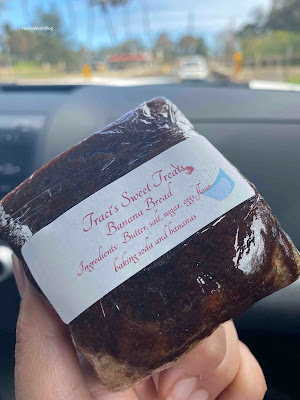 HawaiiMomBlog
Traci's Sweet Treats
Banana Bread
Ingredients: Butter, salt, sugar, eggs, flour
baking soda and bananas